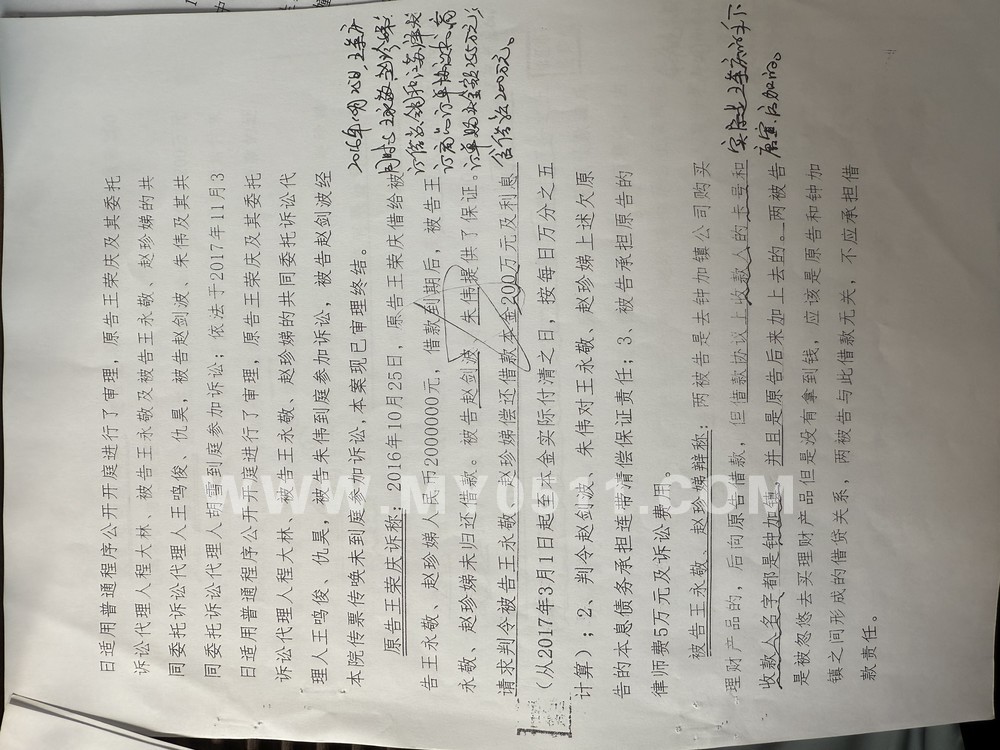 日适用普通程序公开开庭进行了审理，原告王荣庆及其委托
诉讼代理人程大林、被告王永敬及被告王永敬、赵珍娣的共
同委托诉讼代理人王鸣俊、仇昊，被告赵剑波、朱伟及其共
同委托诉讼代理人胡雪到庭参加诉讼；依法于2017年11月3
日适用普通程序公开开庭进行了审理，原告王荣庆及其委托
诉讼代理人程大林、被告王永敬、赵珍娣的共同委托诉讼代
理人王鸣俊、仇昊，被告朱伟到庭参加诉讼，被告赵剑波经
本院传票传唤未到庭参加诉讼，本案现已审理终结。
原告王荣庆诉称：2016年10月25日，原告王荣庆借给被
告王永敬、赵珍娣人民币2000000元，借款到期后，被告王
永敬、赵珍娣未归还借款。被告赵剑波、朱伟提供了保证。
请求判令被告王永敬、赵珍娣偿还借款本金200万元及利息
（从2017年3月1日起至本金实际付清之日，按每日万分之五
计算）；2、判令赵剑波、朱伟对王永敬、赵珍娣上述欠原
告的本息债务承担连带清偿保证责任；3、被告承担原告的
律师费5万元及诉讼费用。
被告王永敬、赵珍娣辩称：两被告是去钟加镇公司购买
理财产品的，后向原告借款，但借款协议上收款人的卡号和
收款人名字都是钟加镇，并且是原告后来加上去的。两被告
是被忽悠去买理财产品但是没有拿到钱，应该是原告和钟加
镇之间形成的借贷关系，两被告与此借款无关，不应承担借
款责任。
2016年10月25日，王荣庆
同时与王永敬 赵珍娣
订单购买金额255万元；
含借款200万元。
WWW.MY0511.COM